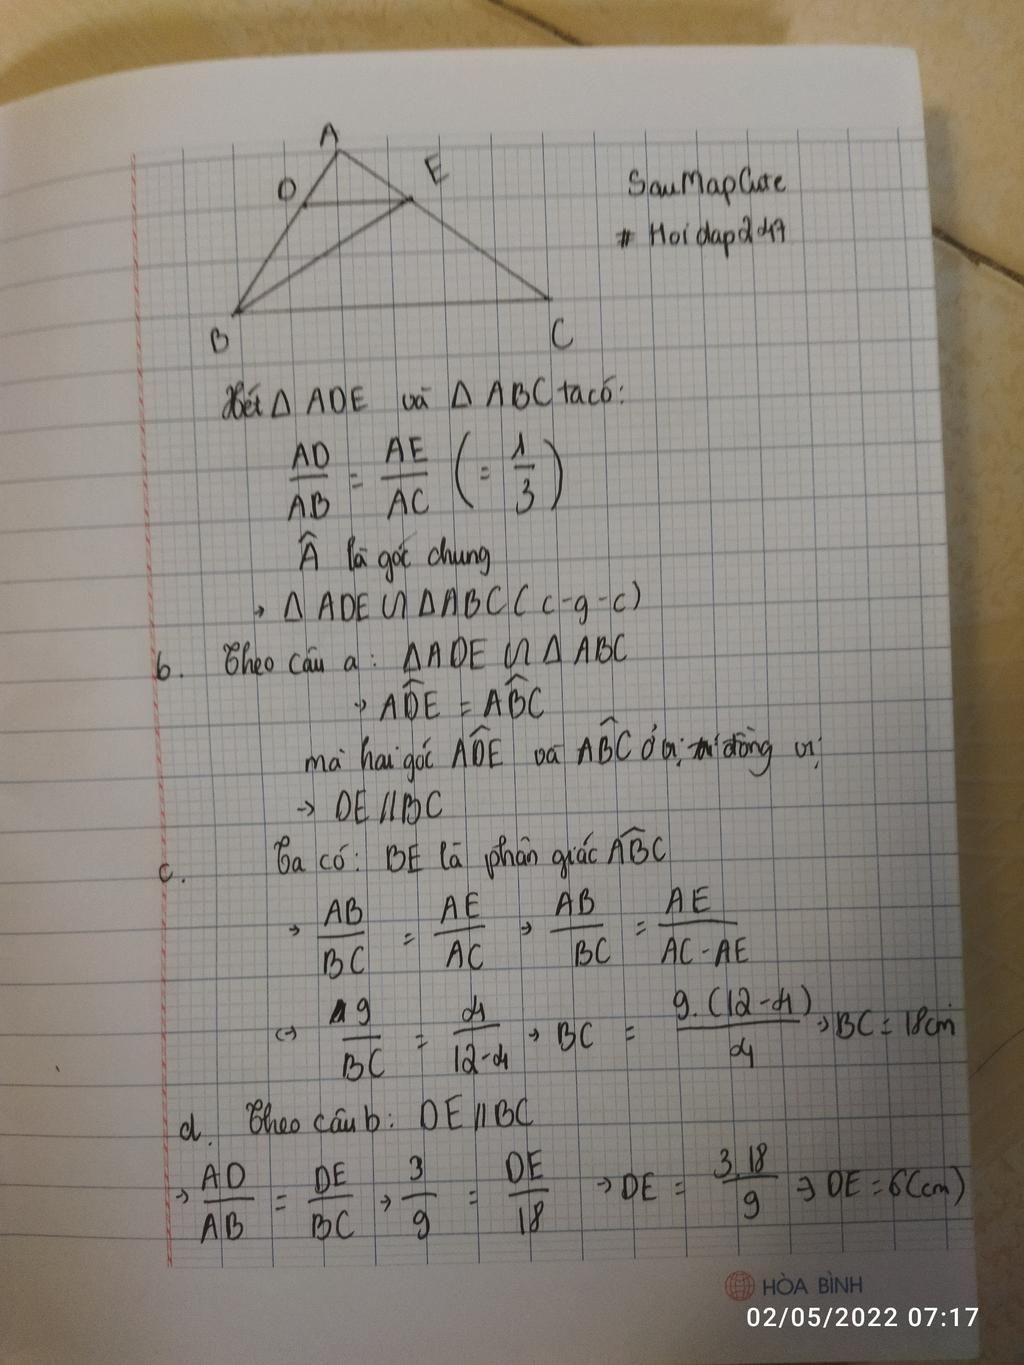 A
D
E
B
C
SauMapCute
# Hoidap247
Xét Δ ADE và Δ ABC ta có:
AD/AB = AE/AC (= 1/3)
Â là góc chung
→ Δ ADE ∽ Δ ABC (c-g-c)
b. Theo câu a: ΔADE ∽ Δ ABC
→ AD̂E = AB̂C
mà hai góc AD̂E và AB̂C ở vị trí đồng vị
→ DE // BC
c. Ta có: BE là phân giác AB̂C
→ AB/BC = AE/AC → AB/BC = AE/AC - AE
⇔ 9/BC = 4/12-4 → BC = 9.(12-4)/4 → BC = 18cm
d. Theo câu b: DE // BC
→ AD/AB = DE/BC → 3/9 = DE/18 → DE = 3.18/9 ⇒ DE = 6(cm)
HÒA BÌNH
02/05/2022 07:17